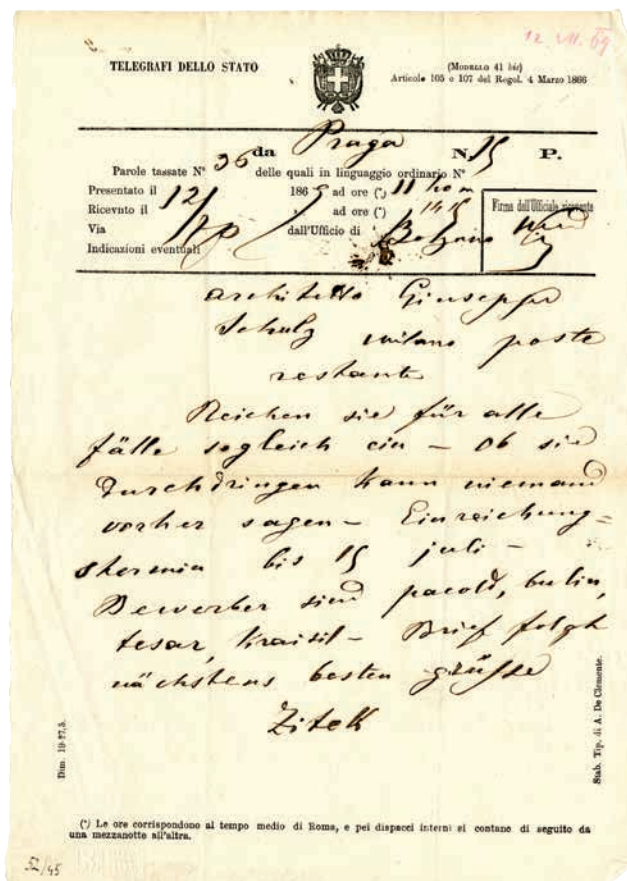 12. VII. 69
TELEGRAFI DELLO STATO
(MODELLO 41 bis)
Articolo 105 e 107 del Regol. 4 Marzo 1866
da Praga N. 15 P.
Parole tassate N° 36 delle quali in linguaggio ordinario N°
Presentato il 12/ 1869 ad ore (*) 11
Ricevuto il ad ore (*)
Via dall'Ufficio di Bolzano
Indicazioni eventuali
Firma dell'Ufficiale ricevente
architetto Giuseppe
Schulz milano poste
restante
Reichen sie für alle
fälle sogleich ein – Ob sie
durchdringen kann niemand
vorher sagen – Einreichung=
stermin bis 15 juli –
Bewerber sind pacold, bulin,
tesar, kraisil – Brief folgt
nächstens besten grüsse
Zitek
Dim. 19-27,5.
Stab. Tip. di A. De Clemente.
(*) Le ore corrispondono al tempo medio di Roma, e pei dispacci interni si contano di seguito da
una mezzanotte all'altra.
52/45